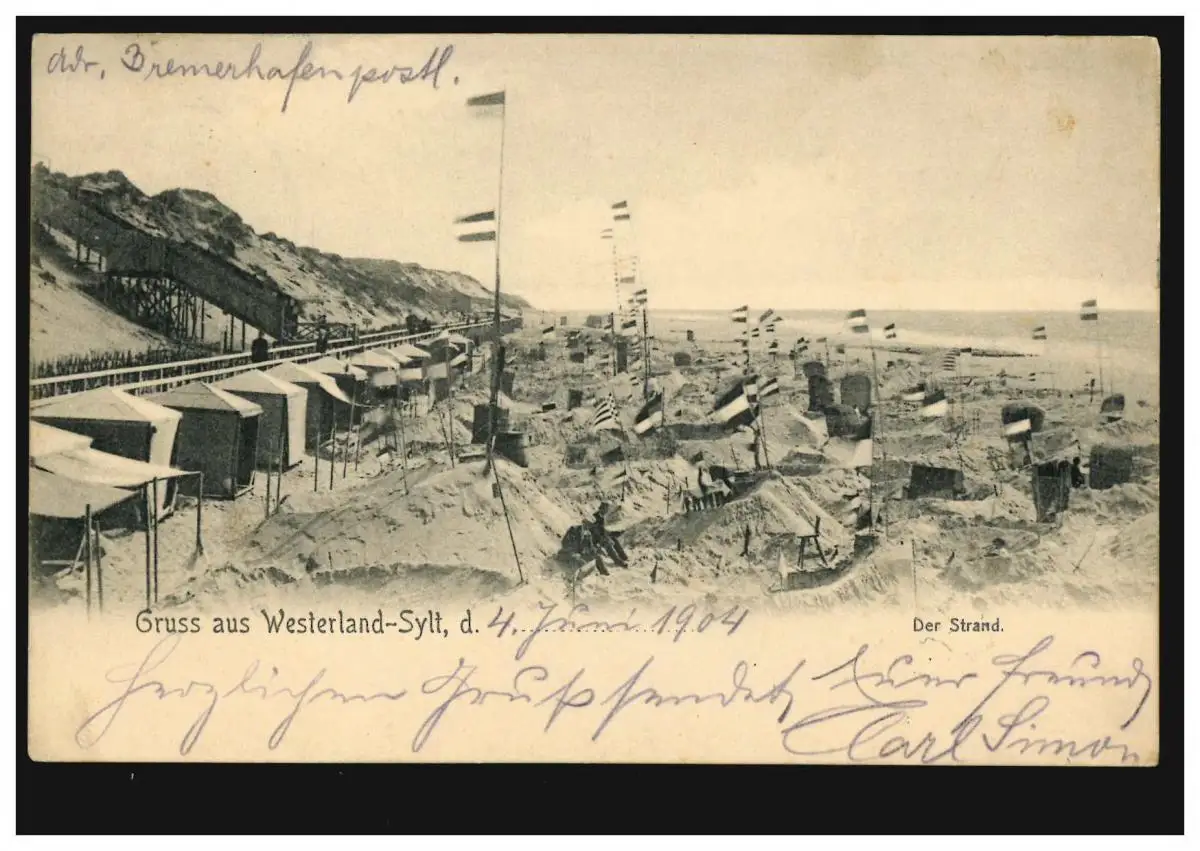 adr. Bremerhafen postl.
Gruss aus Westerland-Sylt, d. 4. Juni 1904
Der Strand.
Herzlichen Gruß sendet Euer Freund
Carl Simon